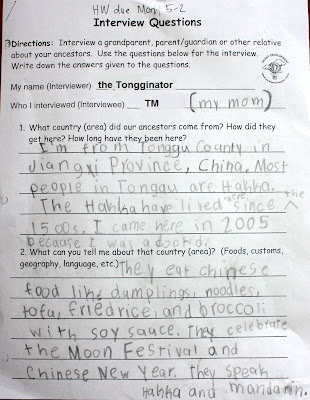 HW due Mon, 5-2
Interview Questions
Directions: Interview a grandparent, parent/guardian or other relative
about your ancestors. Use the questions below for the interview.
Write down the answers given to the questions.
My name (Interviewer) the Tongginator
Who I interviewed (Interviewee) TM (my mom)
1. What country (area) did our ancestors come from? How did they
get here? How long have they been here?
I'm from Tonggu County in
Jiangxi Province, China. Most
people in Tonggu are Hakka.
The Hakka have lived there since the
1500s. I came here in 2005
because I was adopted.
2. What can you tell me about that country (area)? (Foods, customs,
geography, language, etc.) They eat chinese
food like dumplings, noodles,
tofu, friedrice, and broccoli
with soy sauce. They celebrate
the Moon Festival and
Chinese New Year. They speak
Hakka and mandarin.